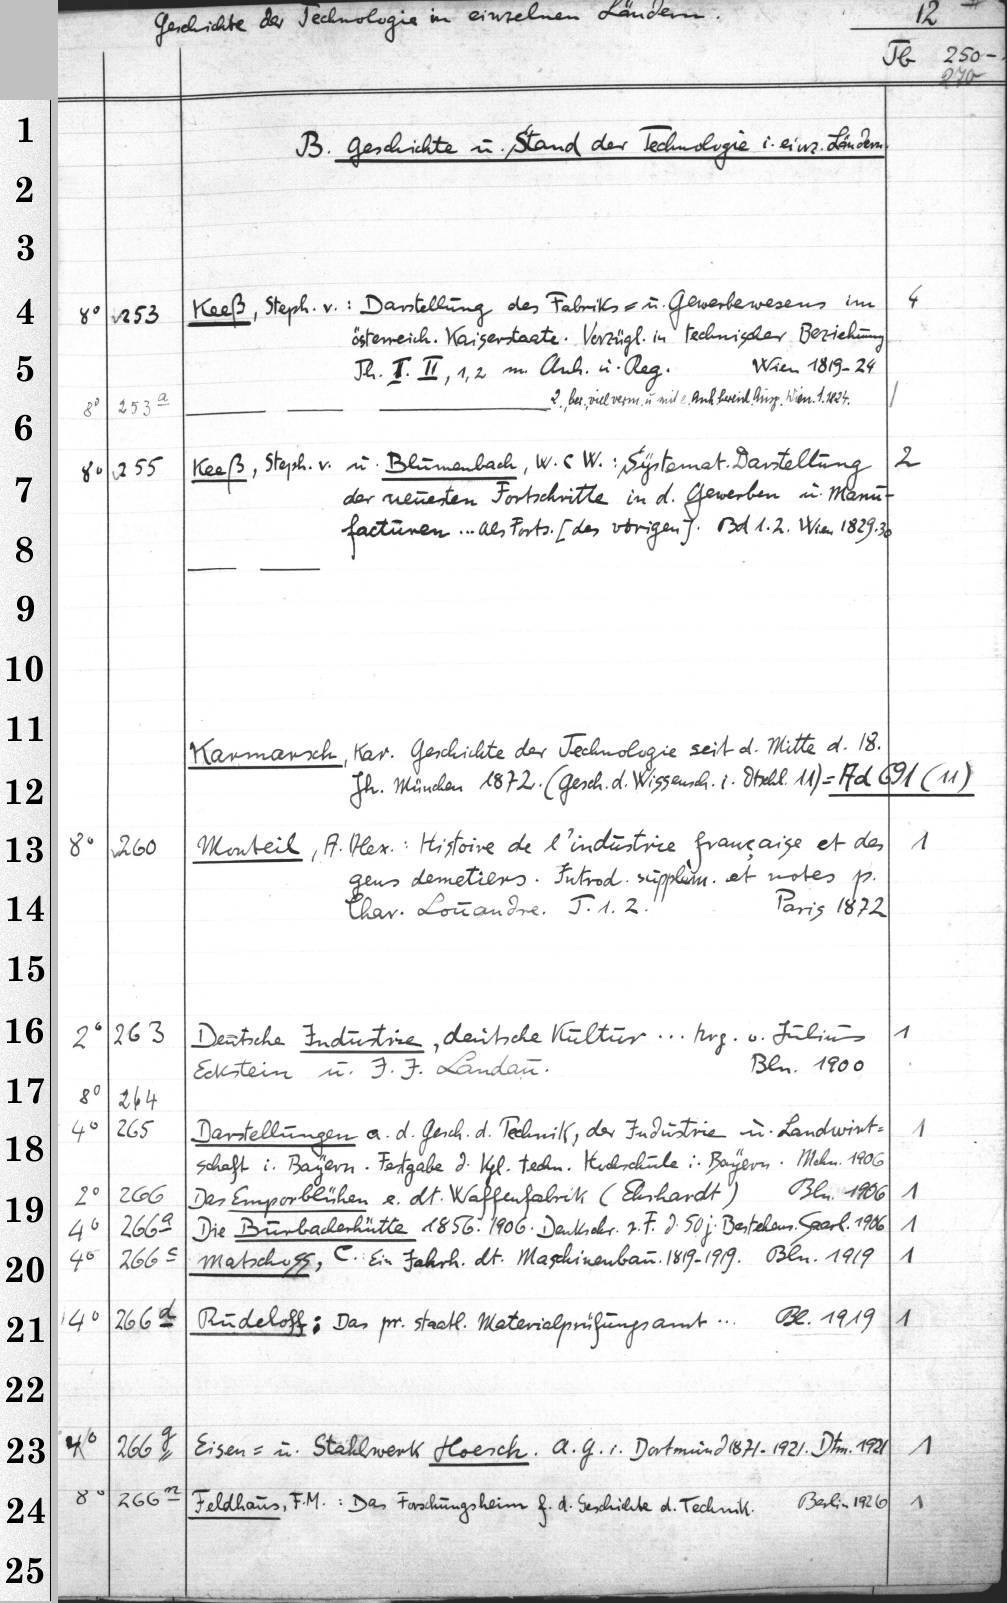 Geschichte der Technologie in einzelnen Ländern. 12
Tb 250-
270
B. Geschichte u. Stand der Technologie i. einz. Ländern.
1
2
3
4 8° 253 Keeß, Steph. v. : Darstellung des Fabriks= u. Gewerbewesens im 4
österreich. Kaiserstaate. Vorzügl. in technischer Beziehung
5 Th. I. II, 1,2 m. Anh. u. Reg. Wien 1819-24
8° 253a 2. , viel verm. u. mit Anh. Ausg. Wien. 1824. 1
6
8° 255 Keeß, Steph. v. u. Blumenbach, W. C W. : Systemat. Darstellung 2
7 der neuesten Fortschritte in d. Gewerben u. Manu-
facturen ... als Forts. [des vorigen]. Bd 1.2. Wien 1829.30
8
9
10
11
Karmarsch, Kar. Geschichte der Technologie seit d. Mitte d. 18.
12 Jh. München 1872. (Gesch. d. Wissensch. i. Dtschl. 11) = Ad 691 (11)
13 8° 260 Monteil, A. Alex. : Histoire de l'industrie française et des 1
gens demetiers. Introd. supplém. et notes p.
14 Char. Louandre. T. 1. 2. Paris 1872
15
16 2° 263 Deutsche Industrie, deutsche Kultur ... hrg. v. Julius 1
Eckstein u. J. J. Landau. Bln. 1900
17 8° 264
4° 265 Darstellungen a. d. Gesch. d. Technik, der Industrie u. Landwirt= 1
18 schaft i. Bayern. Festgabe d. Kgl. techn. Hochschule i. Bayern. Mchn. 1906
2° 266 Das Emporblühen e. dt. Waffenfabrik (Ehrhardt) Bln. 1906 1
19 4° 266a Die Burbacherhütte 1856-1906. Denkschr. z. F. d. 50 j. Bestehens. Saarb. 1906 1
20 4° 266c Matschoss, C. Ein Jahrh. dt. Maschinenbau. 1819-1919. Bln. 1919 1
21 4° 266d Rudeloff; Das pr. staatl. Materialprüfungsamt ... Bl. 1919 1
22
23 4° 266g Eisen= u. Stahlwerk Hoesch. A. G. i. Dortmund 1871-1921. Dtm. 1921 1
24 8° 266n Feldhaus, F.M. : Das Forschungsheim f. d. Geschichte d. Technik. Berlin 1926 1
25